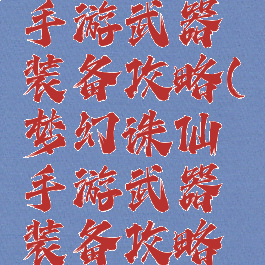 手游武器
装备攻略(
梦幻诛仙
手游武器
装备攻略